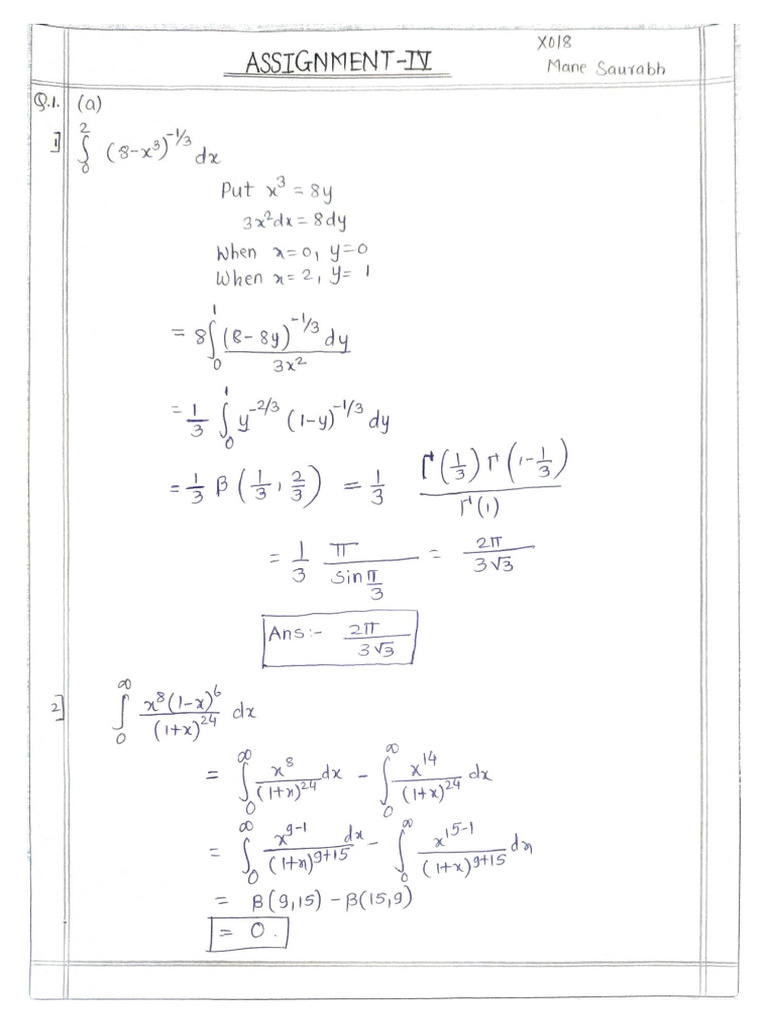 X018
ASSIGNMENT-IV
Mane Saurabh
Q.1. (a)
1] ∫₀² (8-x³)^(-1/3) dx
Put x³ = 8y
3x²dx = 8dy
When x=0, y=0
When x=2, y= 1
= 8∫₀¹ (8-8y)^(-1/3) dy / 3x²
= 1/3 ∫₀¹ y^(-2/3) (1-y)^(-1/3) dy
= 1/3 β(1/3, 2/3) = 1/3 Γ(1/3) Γ(1-1/3) / Γ(1)
= 1/3 π / sin π/3 = 2π / 3√3
Ans:- 2π / 3√3
2] ∫₀^∞ x⁸(1-x)⁶ / (1+x)²⁴ dx
= ∫₀^∞ x⁸ / (1+x)²⁴ dx - ∫₀^∞ x¹⁴ / (1+x)²⁴ dx
= ∫₀^∞ x^(9-1) / (1+x)^(9+15) dx - ∫₀^∞ x^(15-1) / (1+x)^(9+15) dx
= β(9,15) - β(15,9)
= 0.